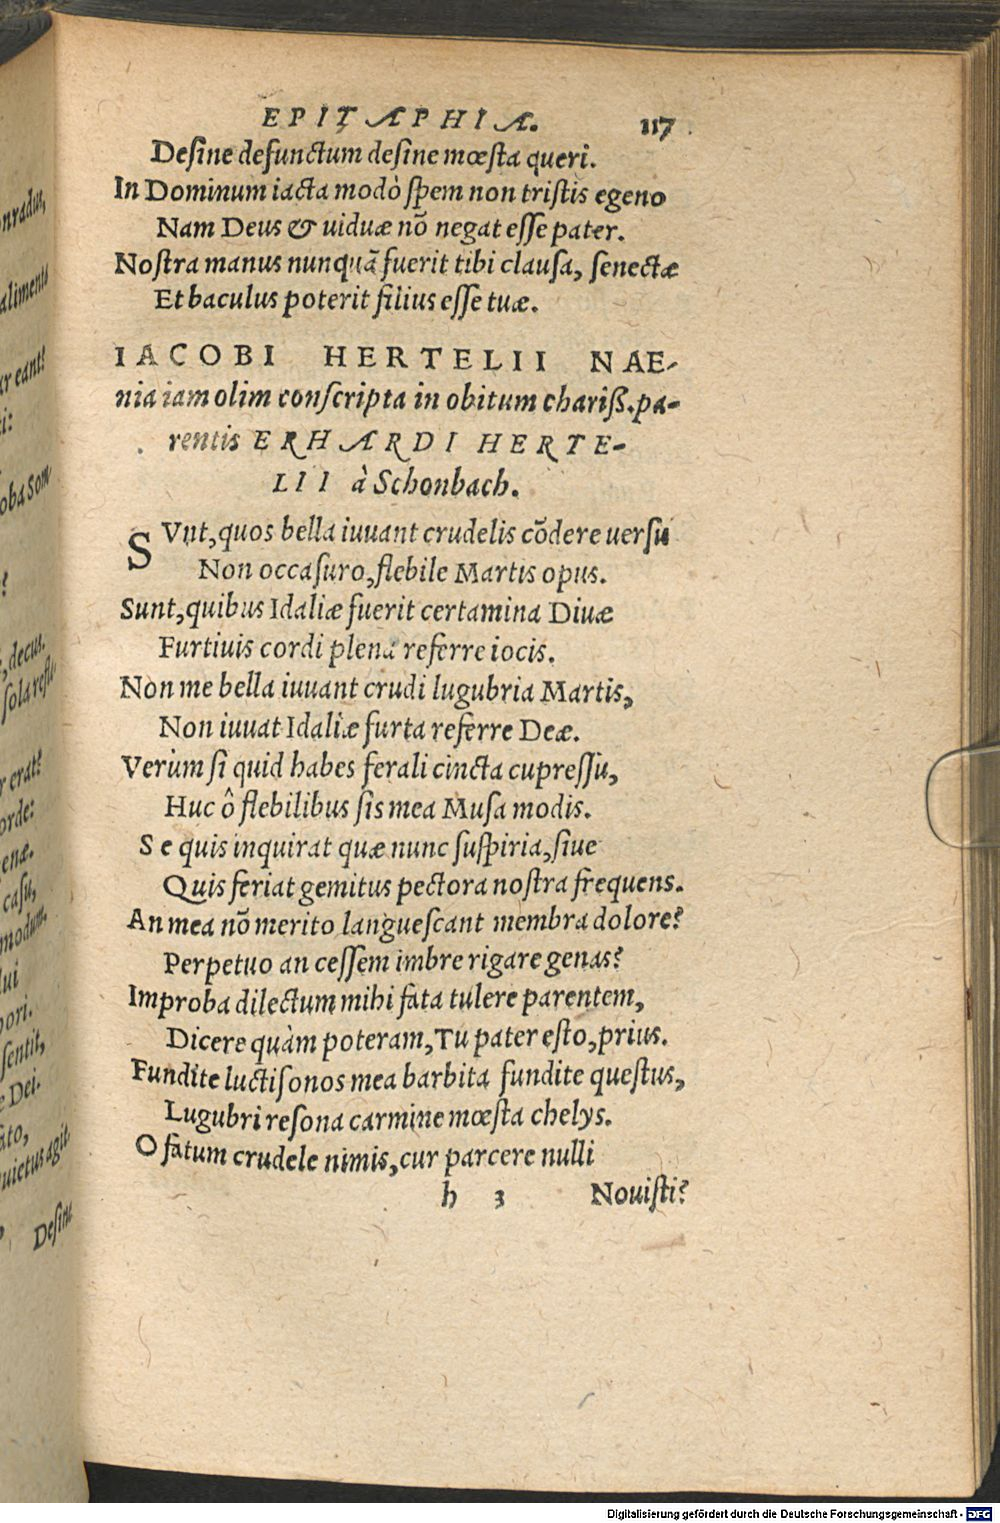 EPITAPHIA. 117
Desine defunctum desine mœsta queri.
In Dominum iacta modò spem non tristis egeno
Nam Deus & uiduæ nō negat esse pater.
Nostra manus nunquã fuerit tibi clausa, senectæ
Et baculus poterit filius esse tuæ.
IACOBI HERTELII NAE-
nia iam olim conscripta in obitum chariß. pa-
rentis ERHARDI HERTE-
LII à Schonbach.
SVnt, quos bella iuuant crudelis cōdere uersu
Non occasuro, flebile Martis opus.
Sunt, quibus Idaliæ fuerit certamina Diuæ
Furtiuis cordi plena referre iocis.
Non me bella iuuant crudi lugubria Martis,
Non iuuat Idaliæ furta referre Deæ.
Verùm si quid habes ferali cincta cupressu,
Huc ô flebilibus sis mea Musa modis.
Se quis inquirat quæ nunc suspiria, siue
Quis feriat gemitus pectora nostra frequens.
An mea nō merito languescant membra dolore?
Perpetuo an cessem imbre rigare genas?
Improba dilectum mihi fata tulere parentem,
Dicere quàm poteram, Tu pater esto, prius.
Fundite luctisonos mea barbita fundite questus,
Lugubri resona carmine mœsta chelys.
O fatum crudele nimis, cur parcere nulli
h 3 Nouisti?
onradus,
alimenta
ur eant?
oba Son
?
, decus.
sola res
r erat?
orde:
enæ.
casu,
modum.
lui
pori.
sentit,
e Dei.
uictus agit.
Desine
Digitalisierung gefördert durch die Deutsche Forschungsgemeinschaft - DFG